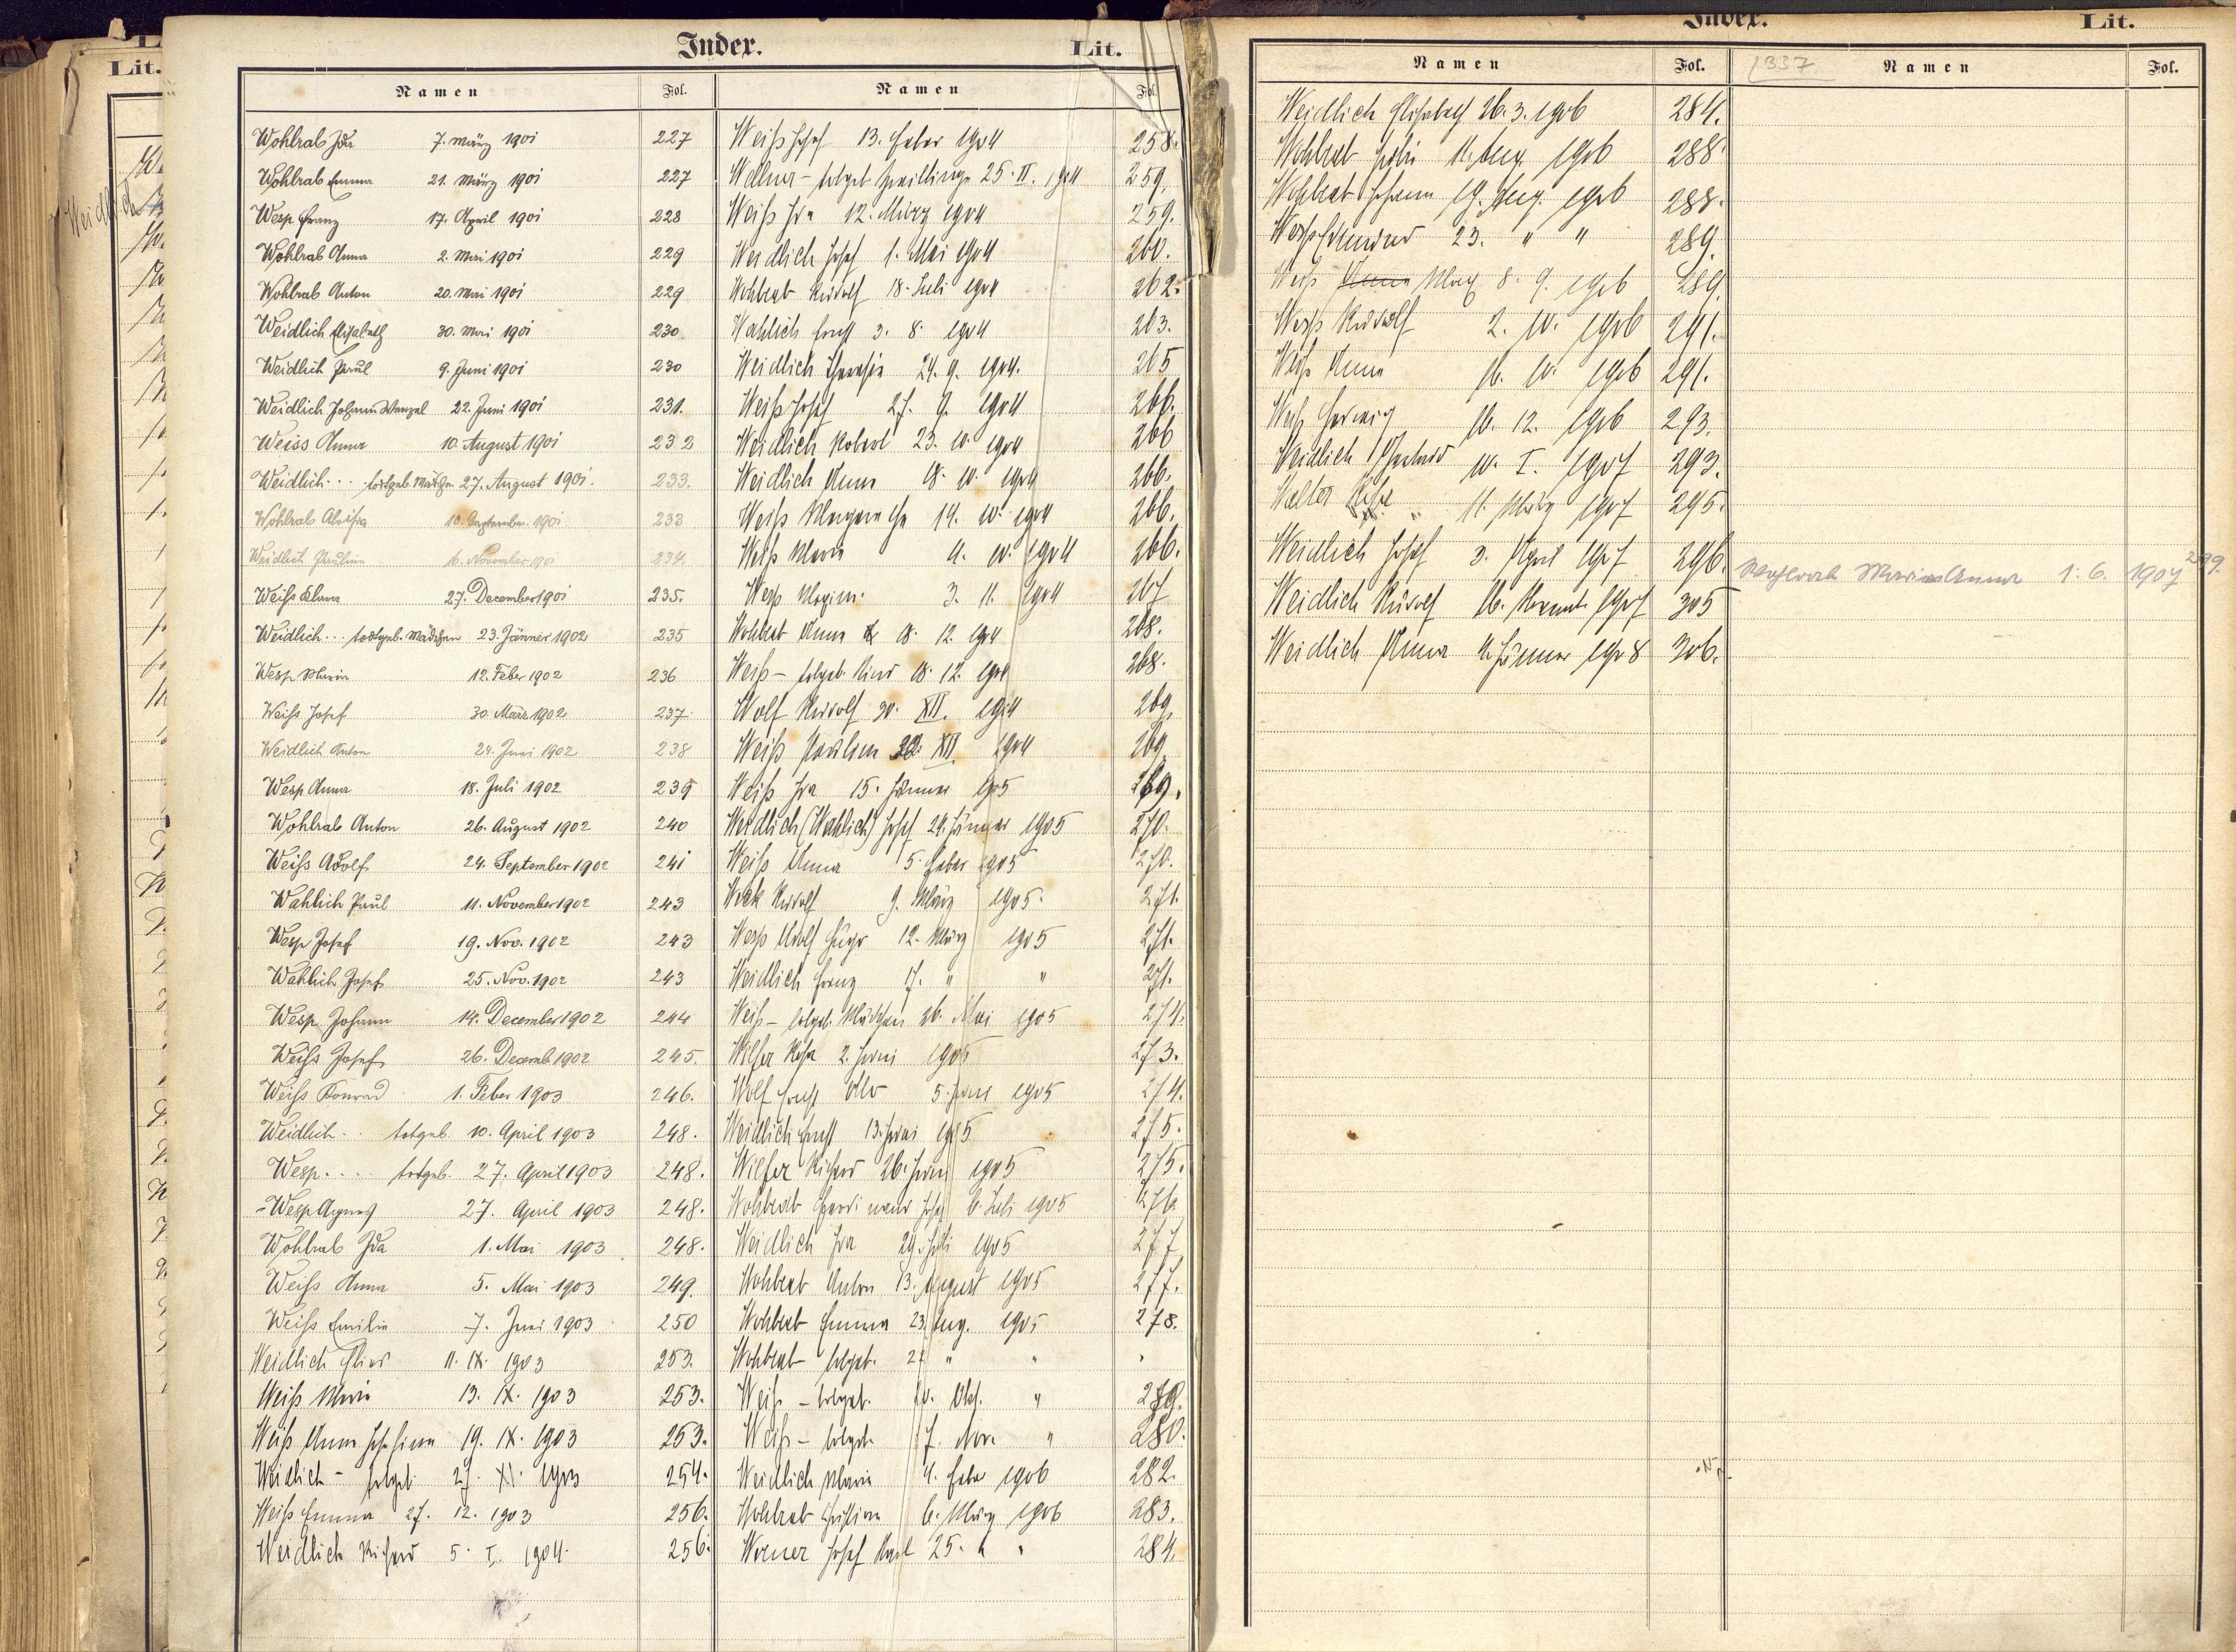 Lit.
Weidlich
Index. Lit.
Namen Fol. Namen Fol.
Wohlrab Ida 7. März 1901 227
Wohlrab Emma 21. März 1901 227
Wesp Franz 17. April 1901 228
Wohlrab Anna 2. Mai 1901 229
Wohlrab Anton 20. Mai 1901 229
Weidlich Elisabeth 30. Mai 1901 230
Weidlich Paul 9. Juni 1901 230
Weidlich Johann Wenzel 22. Juni 1901 231.
Weiss Anna 10. August 1901 232
Weidlich... todtgeb. Mädchen 27. August 1901. 233.
Wohlrab Aloisia 10. September. 1901 233
Weidlich Paulina 16. November 1901 234.
Weiß Klara 27. December 1901 235.
Weidlich... todtgeb. Mädchen 23. Jänner 1902 235
Wesp Maria 12. Feber 1902 236
Weiß Josef 30. März 1902 237
Weidlich Anton 24. Juni 1902 238
Wesp Anna 18. Juli 1902 239
Wohlrab Anton 26. August 1902 240
Weiß Adolf 24. September 1902 241
Wahlich Paul 11. November 1902 243
Wesp Josef 19. Nov. 1902 243
Wahlich Josef 25. Nov. 1902 243
Wesp Johann 14. December 1902 244
Weiß Josef 26. Decemb 1902 245.
Weiß Konrad 1. Feber 1903 246.
Weidlich.. totgeb. 10. April 1903 248.
Wesp.... totgeb. 27. April 1903 248.
Wesp Agnes 27. April 1903 248.
Wohlrab Ida 1. Mai 1903 248.
Weiß Anna 5. Mai 1903 249.
Weiß Emilie 7. Juni 1903 250
Weidlich 11. IX. 1903 253.
Weiß Maria 13. IX. 1903 253.
Weiß Anna Josefina 19. IX. 1903 253.
Weidlich - totgeb. 27. XI. 1903 254.
Weiß Emma 27. 12. 1903 256.
Weidlich Richard 5. I. 1904. 256.
Weiß Josef 13. Feber 1904 258.
Wellner - totgeb. Zwillinge 25. II. 1904 259.
Weiß Ida 12. März 1904 259.
Weidlich Josef 1. Mai 1904 260.
Wohlrab Rudolf 18. Juli 1904 262.
Wahlich Ernst 3. 8. 1904 263.
Weidlich Theresia 24. 9. 1904. 265
Weiß Josef 27. 9. 1904 266.
Weidlich Robert 23. 10. 1904 266
Weidlich Anna 18. 10. 1904 266.
Weiß Margaretha 14. 10. 1904 266.
Weiß Maria 4. 10. 1904 266.
Wesp Maxim. 3. 11. 1904 267
Wohlrab Anna 18. 12. 1904 268.
Weiß - totgeb. Kind 18. 12. 1904 268.
Wolf Rudolf 30. XII. 1904 269.
Weiß Paulina XII. 1904 269
Weiß Ida 15. Jänner 1905 269.
Weidlich (Wahlich) Josef 24. Jänner 1905 270.
Weiß Anna 5. Feber 1905 270.
Rudolf 9. März 1905. 271.
Wesp Adolf Hugo 12. März 1905 271.
Weidlich Franz 17. " " 271.
Weiß - totgeb. Mädchen 26. Mai 1905 274.
Wilfer Rosa 2. Juni 1905 273.
Wolf Ernst 5. Juni 1905 274.
Weidlich Ernst 13. Juni 1905 275.
Wilfer Richard 26. Juni 1905 275.
Wohlrab Ferdinand Josef 6. Juli 1905 276.
Weidlich Ida 29. Juli 1905 277
Wohlrab Anton 13. August 1905 277.
Wohlrab Emma 23. Aug. 1905 278.
Wohlrab totgeb. " "
Weiß - totgeb. 10. Okt. " 279.
Weiß - totgeb. 17. Nov. " 280.
Weidlich Maria 4. Feber 1906 282.
Wohlrab Christina 6. März 1906 283.
Werner Josef Karl 25. " " 284.
Index. Lit.
Namen Fol. 337 Namen Fol.
Weidlich Elisabeth 26. 3. 1906 284.
Wohlrab 11. Aug. 1906 288.
Wohlrab Johann 19. Aug. 1906 288.
Wesp Edmund 23. " " 289.
Weiß Anna Max 8. 9. 1906 289
Wesp Rudolf 2. 10. 1906 291.
Weiß Anna 16. 10. 1906 291.
Weiß Hedwig 10. 12. 1906 293.
Weidlich 10. I. 1907 293.
Walter 11. März 1907 295.
Weidlich Josef 3. April 1907 296.
Wohlrab Maria Anna 1. 6. 1907 299.
Weidlich Rudolf 16. 1907 305
Weidlich Anna 4. Jänner 1908 306.